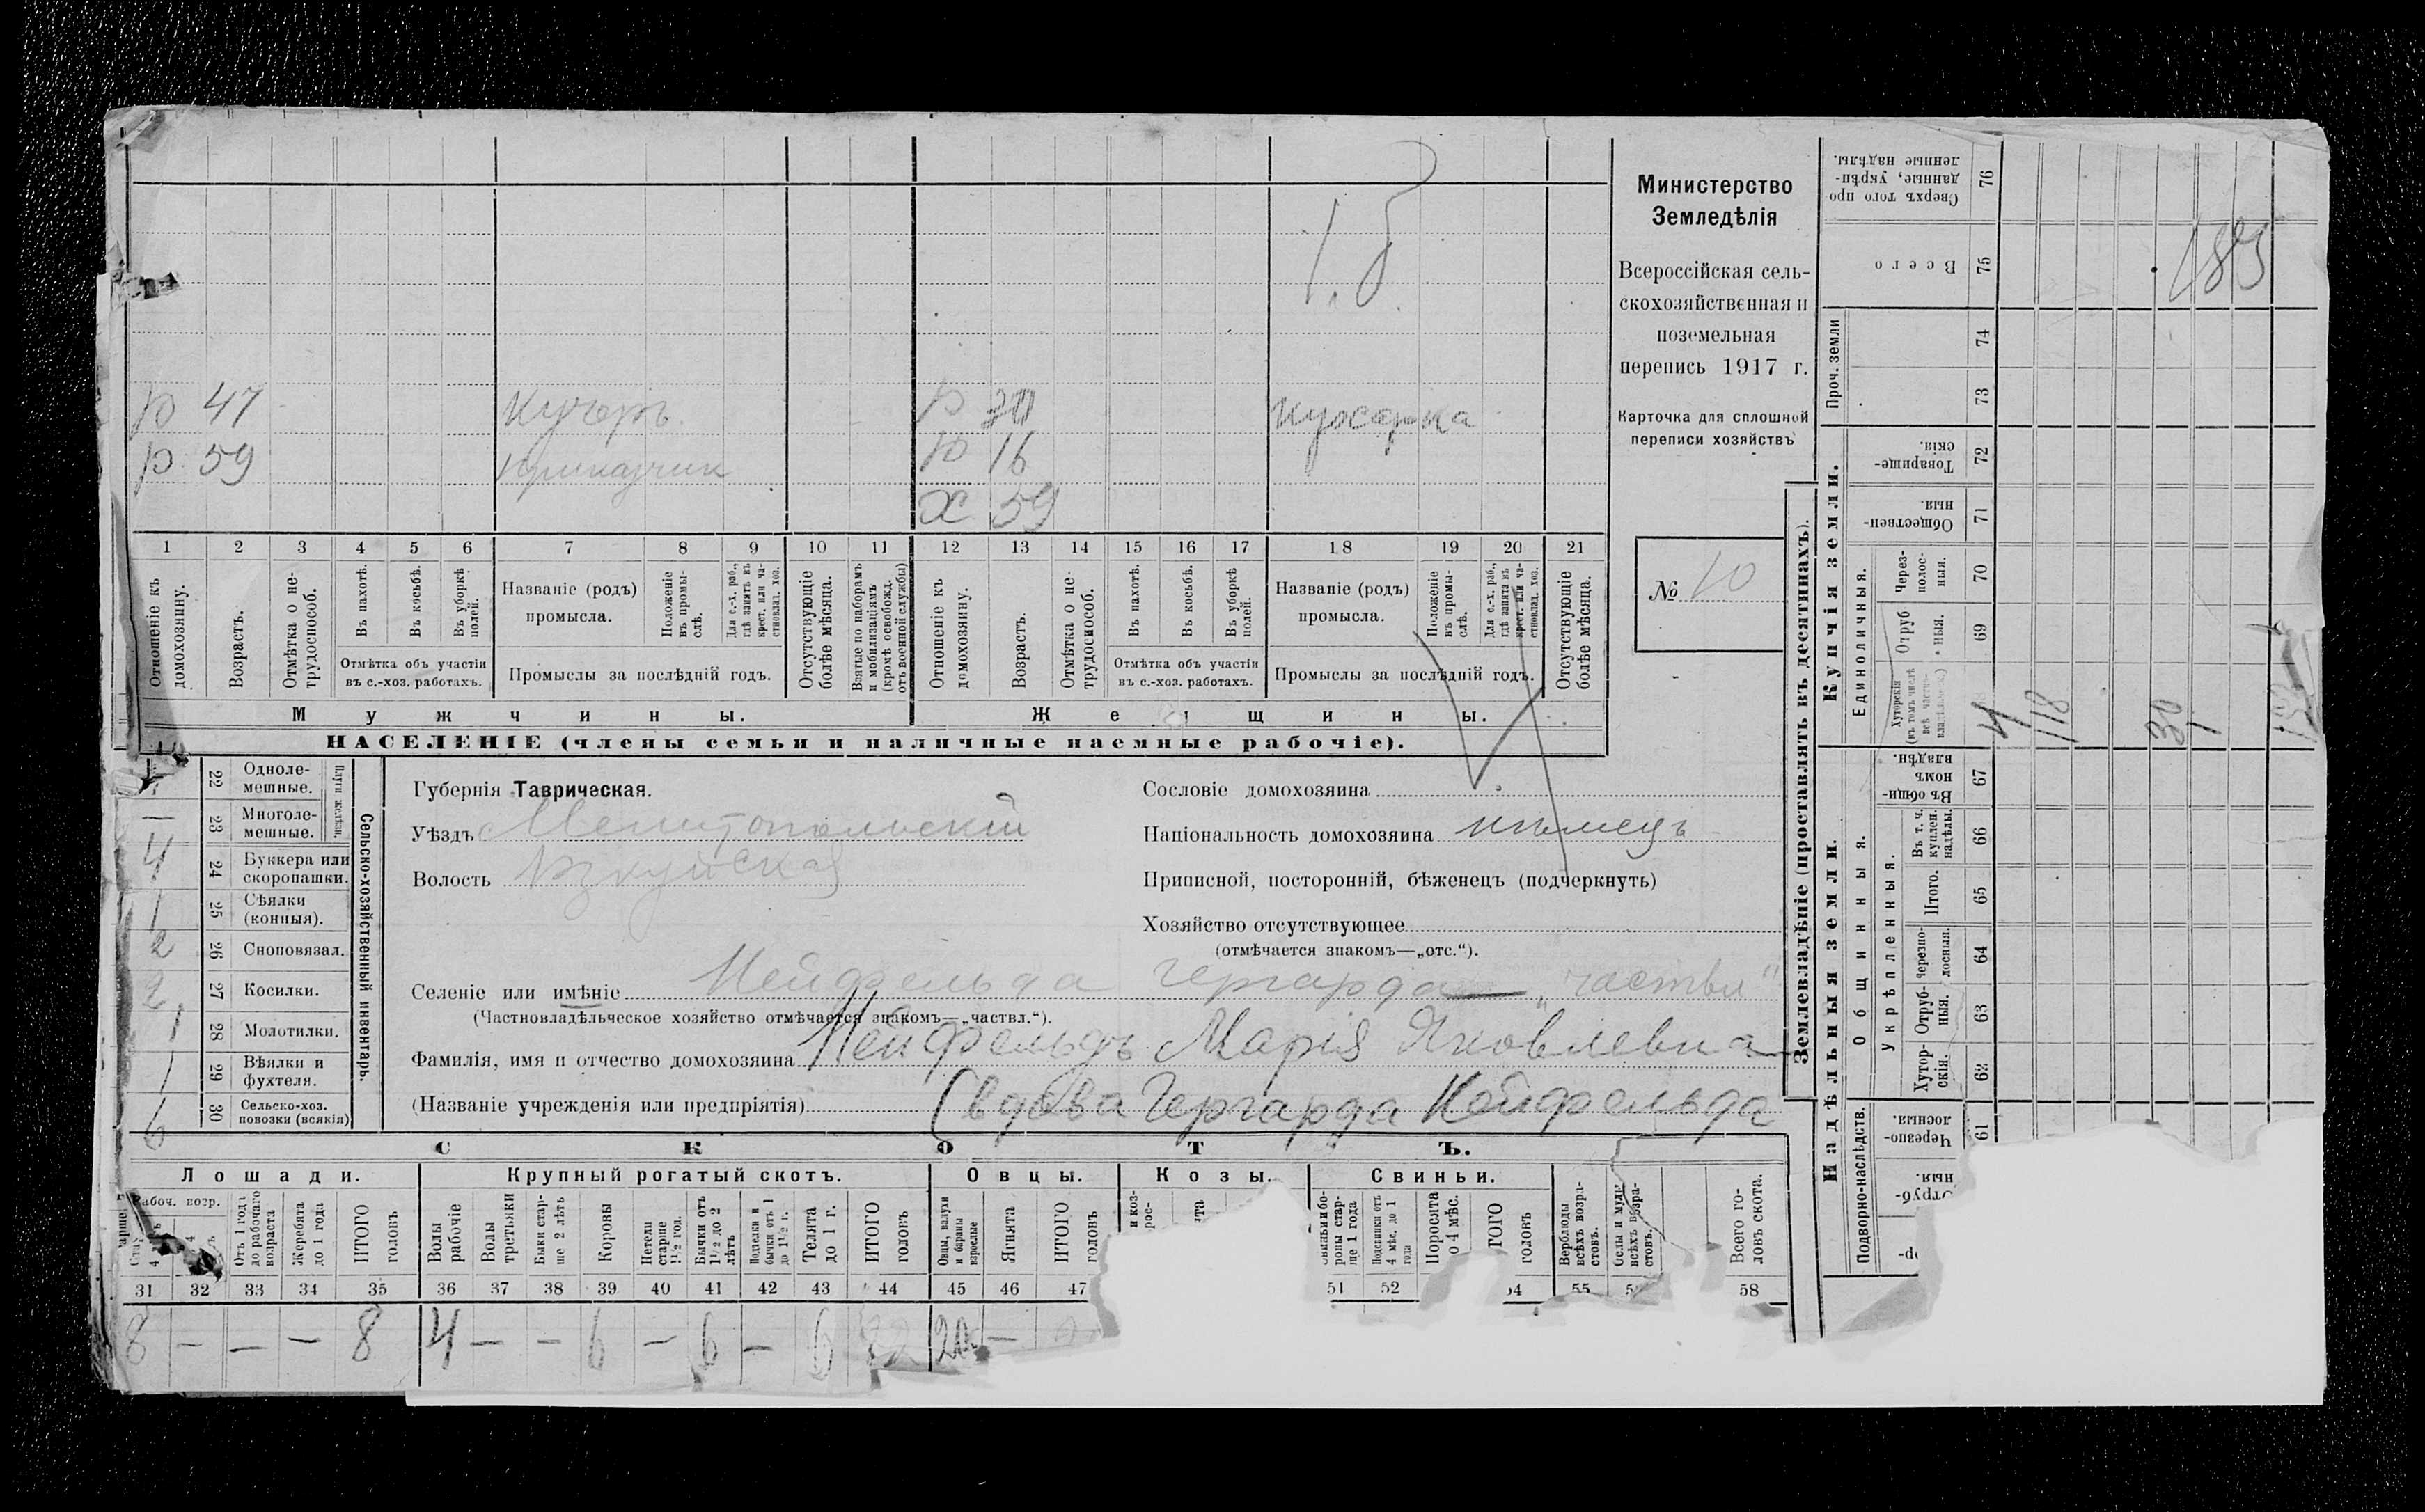 1.б
р 47 Кучеръ р 30 кухарка
р 59 приказчик р 16
х 59
1 2 3 4 5 6 7 8 9 10 11 12 13 14 15 16 17 18 19 20 21
Отношеніе къ домохозяину.
Возрастъ.
Отмѣтка о не-
трудоспособ.
Въ пахотѣ.
Въ косьбѣ.
Въ уборкѣ
полей.
Отмѣтка объ участіи
въ с.-хоз. работахъ.
Названіе (родъ)
промысла.
Положеніе
въ промы-
слѣ.
Для с.-х. раб.,
гдѣ занятъ въ
крест. или ча-
стновлад. хоз.
Промыслы за послѣдній годъ.
Отсутствующіе
болѣе мѣсяца.
Взятые по наборамъ
и мобилизаціямъ
(кромѣ освобожд.
отъ военной службы)
Отношеніе къ
домохозяину.
Возрастъ.
Отмѣтка о не-
трудоспособ.
Въ пахотѣ.
Въ косьбѣ.
Въ уборкѣ
полей.
Отмѣтка объ участіи
въ с.-хоз. работахъ.
Названіе (родъ)
промысла.
Положеніе
въ промы-
слѣ.
Для с.-х. раб.,
гдѣ занятъ въ
крест. или ча-
стновлад. хоз.
Промыслы за послѣдній годъ.
Отсутствующіе
болѣе мѣсяца.
Мужчины.
Женщины.
НАСЕЛЕНІЕ (члены семьи и наличные наемные рабочіе).
Министерство
Земледѣлія
Всероссійская сель-
скохозяйственная и
поземельная
перепись 1917 г.
Карточка для сплошной
переписи хозяйствъ
№ 10
22 Одноле-
мешные.
Плуги желѣзн.
— 23 Многоле-
мешные.
4 24 Буккера или
скоропашки.
1 25 Сѣялки
(конныя).
2 26 Сноповязал.
2 27 Косилки.
1 28 Молотилки.
1 29 Вѣялки и
фухтеля.
6 30 Сельско-хоз.
повозки (всякія)
Сельско-хозяйственный инвентарь.
Губернія Таврическая.
Уѣздъ Мелитопольскій
Волость
Сословіе домохозяина
Національность домохозяина нѣмецъ
Приписной, посторонній, бѣженецъ (подчеркнуть)
Хозяйство отсутствующее
(отмѣчается знакомъ—„отс.“).
Селеніе или имѣніе Нейфельда Гергарда — „частвл“
(Частновладѣльческое хозяйство отмѣчается знакомъ—„частвл.“).
Фамилія, имя и отчество домохозяина Нейфельдъ Марія Яковлевна
(Названіе учрежденія или предпріятія) (вдова Гергарда Нейфельда
СКОТЪ.
Лошади. Крупный рогатый скотъ. Овцы. Козы. Свиньи.
Рабоч. возр.
Отъ 1 года
до рабочаго
возраста
Жеребята
до 1 года
ИТОГО
головъ
Волы
рабочіе
Волы
третьяки
Быки стар-
ше 2 лѣтъ
Коровы
Нетели
старше
1½ год.
Бычки отъ
1½ до 2
лѣтъ
Подтелки и
бычки отъ 1
до 1½ г.
Телята
до 1 г.
ИТОГО
головъ
Овцы, валухи
и бараны
взрослые
Ягнята
ИТОГО
головъ
Подсвинки отъ
4 мѣс. до 1
года
Поросята
о 4 мѣс.
ГОГО
головъ
Верблюды
всѣхъ возра-
стовъ.
Ослы и мулы
всѣхъ возра-
стовъ.
Всего го-
ловъ скота.
31 32 33 34 35 36 37 38 39 40 41 42 43 44 45 46 47 51 52 54 55 58
8 — — — 8 4 — — 6 — 6 — 6 22 20 —
Землевладѣніе (проставлять въ десятинахъ).
Надѣльныя земли.
Купчія земли.
Подворно-наслѣдств.
Общинныя.
Укрѣпленныя.
Единоличныя.
Проч. земли
Сверхъ того про
данные, укрѣп-
ленные надѣлы.
76
Всего
75
185
74
73
Товарище-
скія.
72
Обществен-
ныя.
71
Через-
полос-
ныя.
70
Отруб
ныя.
69
Хуторскія
(въ томъ числѣ
всѣ частно-
владѣльческ.)
118
30
Въ общи-
номъ
владѣн.
67
Въ т. ч.
куплен.
надѣлы.
66
Итого.
65
Черезпо-
лосныя.
64
Отруб-
ныя.
63
Хутор-
скія.
62
Черезпо-
лосныя.
61
Отруб-
ныя.